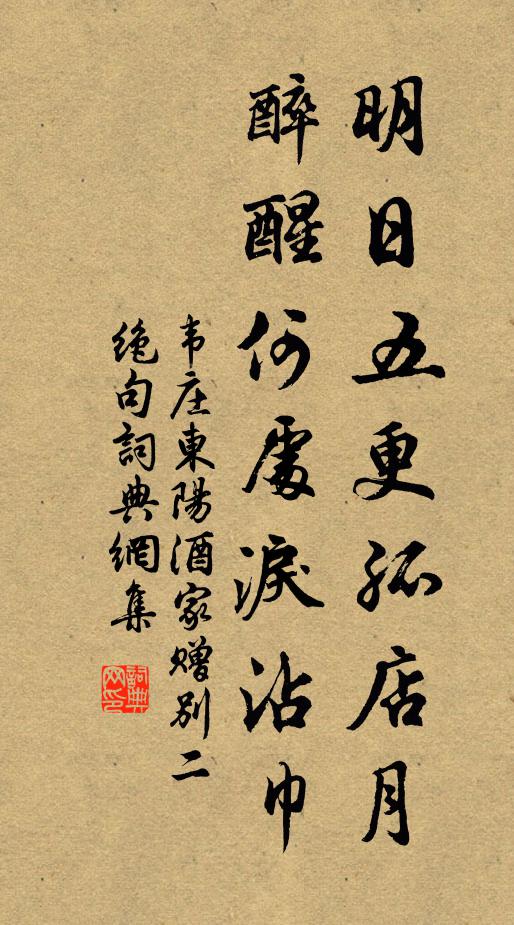 明日五更孤店月
醉醒何處淚沾巾
韦庄東陽酒家贈别二
絶句詞典網集
詞典
网印